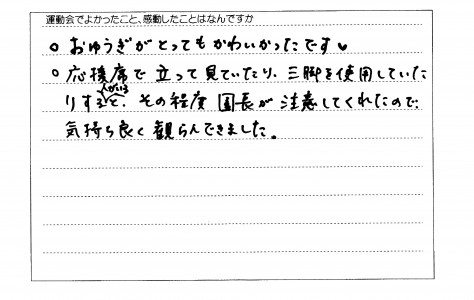 運動会でよかったこと、感動したことはなんですか
○ おゆうぎがとってもかわいかったです♥
○ 応援席で立って見ていたり、三脚を使用していた
りする人がいると、その程度 園長が注意してくれたので
気持ち良く観らんできました。